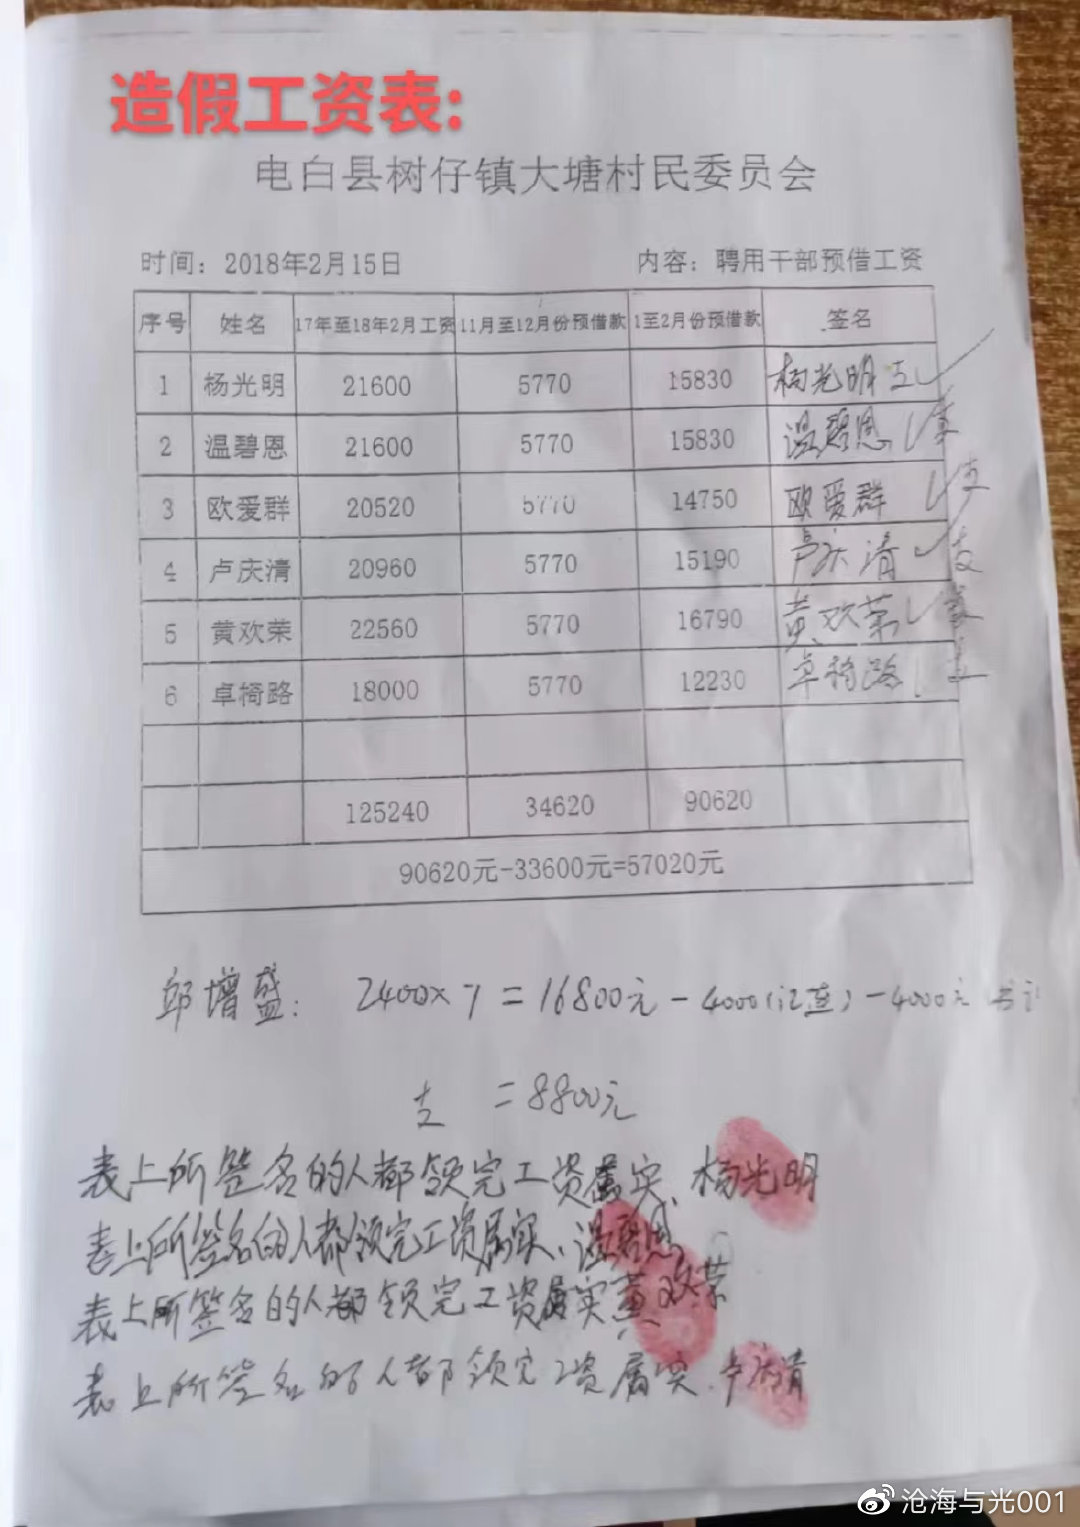 造假工资表:
电白县树仔镇大塘村民委员会
时间：2018年2月15日 内容：聘用干部预借工资
序号 姓名 17年至18年2月工资 11月至12月份预借款 1至2月份预借款 签名
1 杨光明 21600 5770 15830 杨光明 支✓
2 温碧恩 21600 5770 15830 温碧恩 ✓
3 欧爱群 20520 5770 14750 欧爱群 ✓支
4 卢庆清 20960 5770 15190 卢庆清 ✓支
5 黄欢荣 22560 5770 16790 黄欢荣 ✓
6 卓椅路 18000 5770 12230 卓椅路
125240 34620 90620
90620元-33600元=57020元
邱增盛： 2400×7=16800元-4000 -4000元
支 =8800元
表上所签名的人都领完工资属实、杨光明
表上所签名的人都领完工资属实、温碧恩
表上所签名的人都领完工资属实黄欢荣
表上所签名的人都领完工资属实.卢庆清
沧海与光001